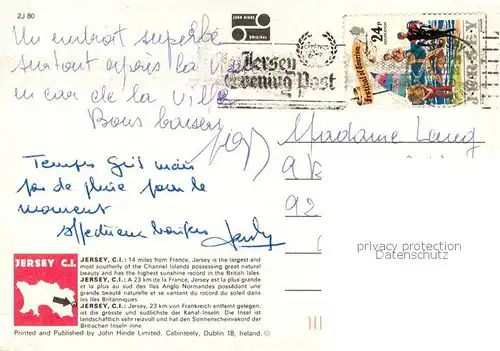 2J 80
JOHN HINDE
ORIGINAL
Jersey
Evening Post
24p
Festival of Tourism
JERSEY
Un endroit superbe
surtout après la
en car de la ville
Bons baisers
Madame
9
92
Temps gris mais
pas de pluie pour le
moment
affectueux baisers
privacy protection
Datenschutz
JERSEY C.I.
JERSEY, C.I.: 14 miles from France, Jersey is the largest and
most southerly of the Channel Islands possessing great natural
beauty and has the highest sunshine record in the British Isles.
JERSEY, C.I.: A 23 km de la France, Jersey est la plus grande
et la plus au sud des Iles Anglo-Normandes possédant une
grande beauté naturelle et se vantant du record du soleil dans
les Iles Britanniques
JERSEY, C.I.: Jersey, 23 km von Frankreich entfernt gelegen,
ist die grösste und südlichste der Kanal-Inseln. Die Insel ist
landschaftlich sehr reizvoll und hat den Sonnenscheinrekord der
Britischen Inseln inne
Printed and Published by John Hinde Limited, Cabinteely, Dublin 18, Ireland.